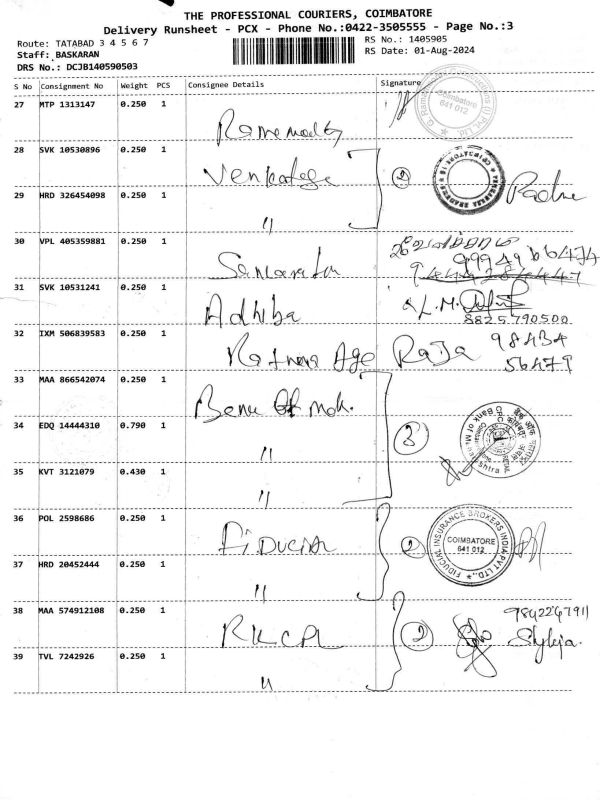 THE PROFESSIONAL COURIERS, COIMBATORE
Delivery Runsheet - PCX - Phone No.:0422-3505555 - Page No.:3
Route: TATABAD 3 4 5 6 7
RS No.: 1405905
Staff: BASKARAN
RS Date: 01-Aug-2024
DRS No.: DCJB140590503
S No Consignment No Weight PCS Consignee Details Signature
27 MTP 1313147 0.250 1
Coimbatore
641 012
28 SVK 10530896 0.250 1
Venkatesa 2
29 HRD 326454098 0.250 1
"
30 VPL 405359881 0.250 1
99949 66474
31 SVK 10531241 0.250 1
Adhiba L.M.
8825790500
32 IXM 506839583 0.250 1
Ratna Age Raja 98434
56479
33 MAA 866542074 0.250 1
Bank Of Mah. 3
Bank of Maharashtra
34 EDQ 14444310 0.790 1
"
35 KVT 3121079 0.430 1
"
36 POL 2598686 0.250 1
Fiducial 2
FIDUCIAL INSURANCE BROKERS INDIA PVT LTD.,
COIMBATORE
641 012
37 HRD 20452444 0.250 1
"
38 MAA 574912108 0.250 1
9842247911
RKCPL 2
39 TVL 7242926 0.250 1
"